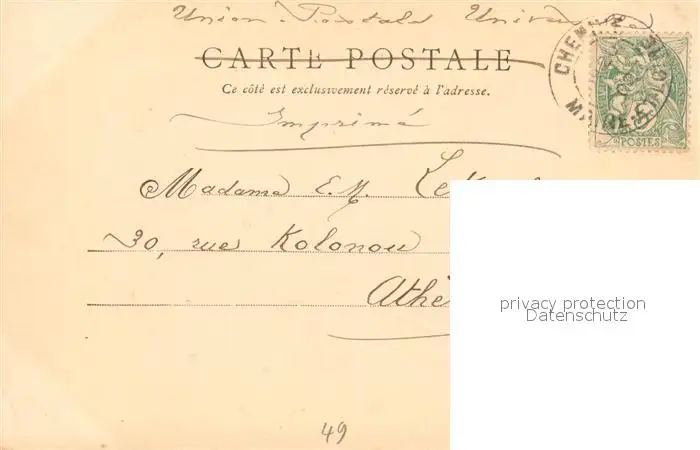 Union Postale
CARTE POSTALE
Ce côté est exclusivement réservé à l'adresse.
Imprimé
Madame E. M.
30, rue Kolonou
Athè
POSTES
MAINE
privacy protection
Datenschutz
49